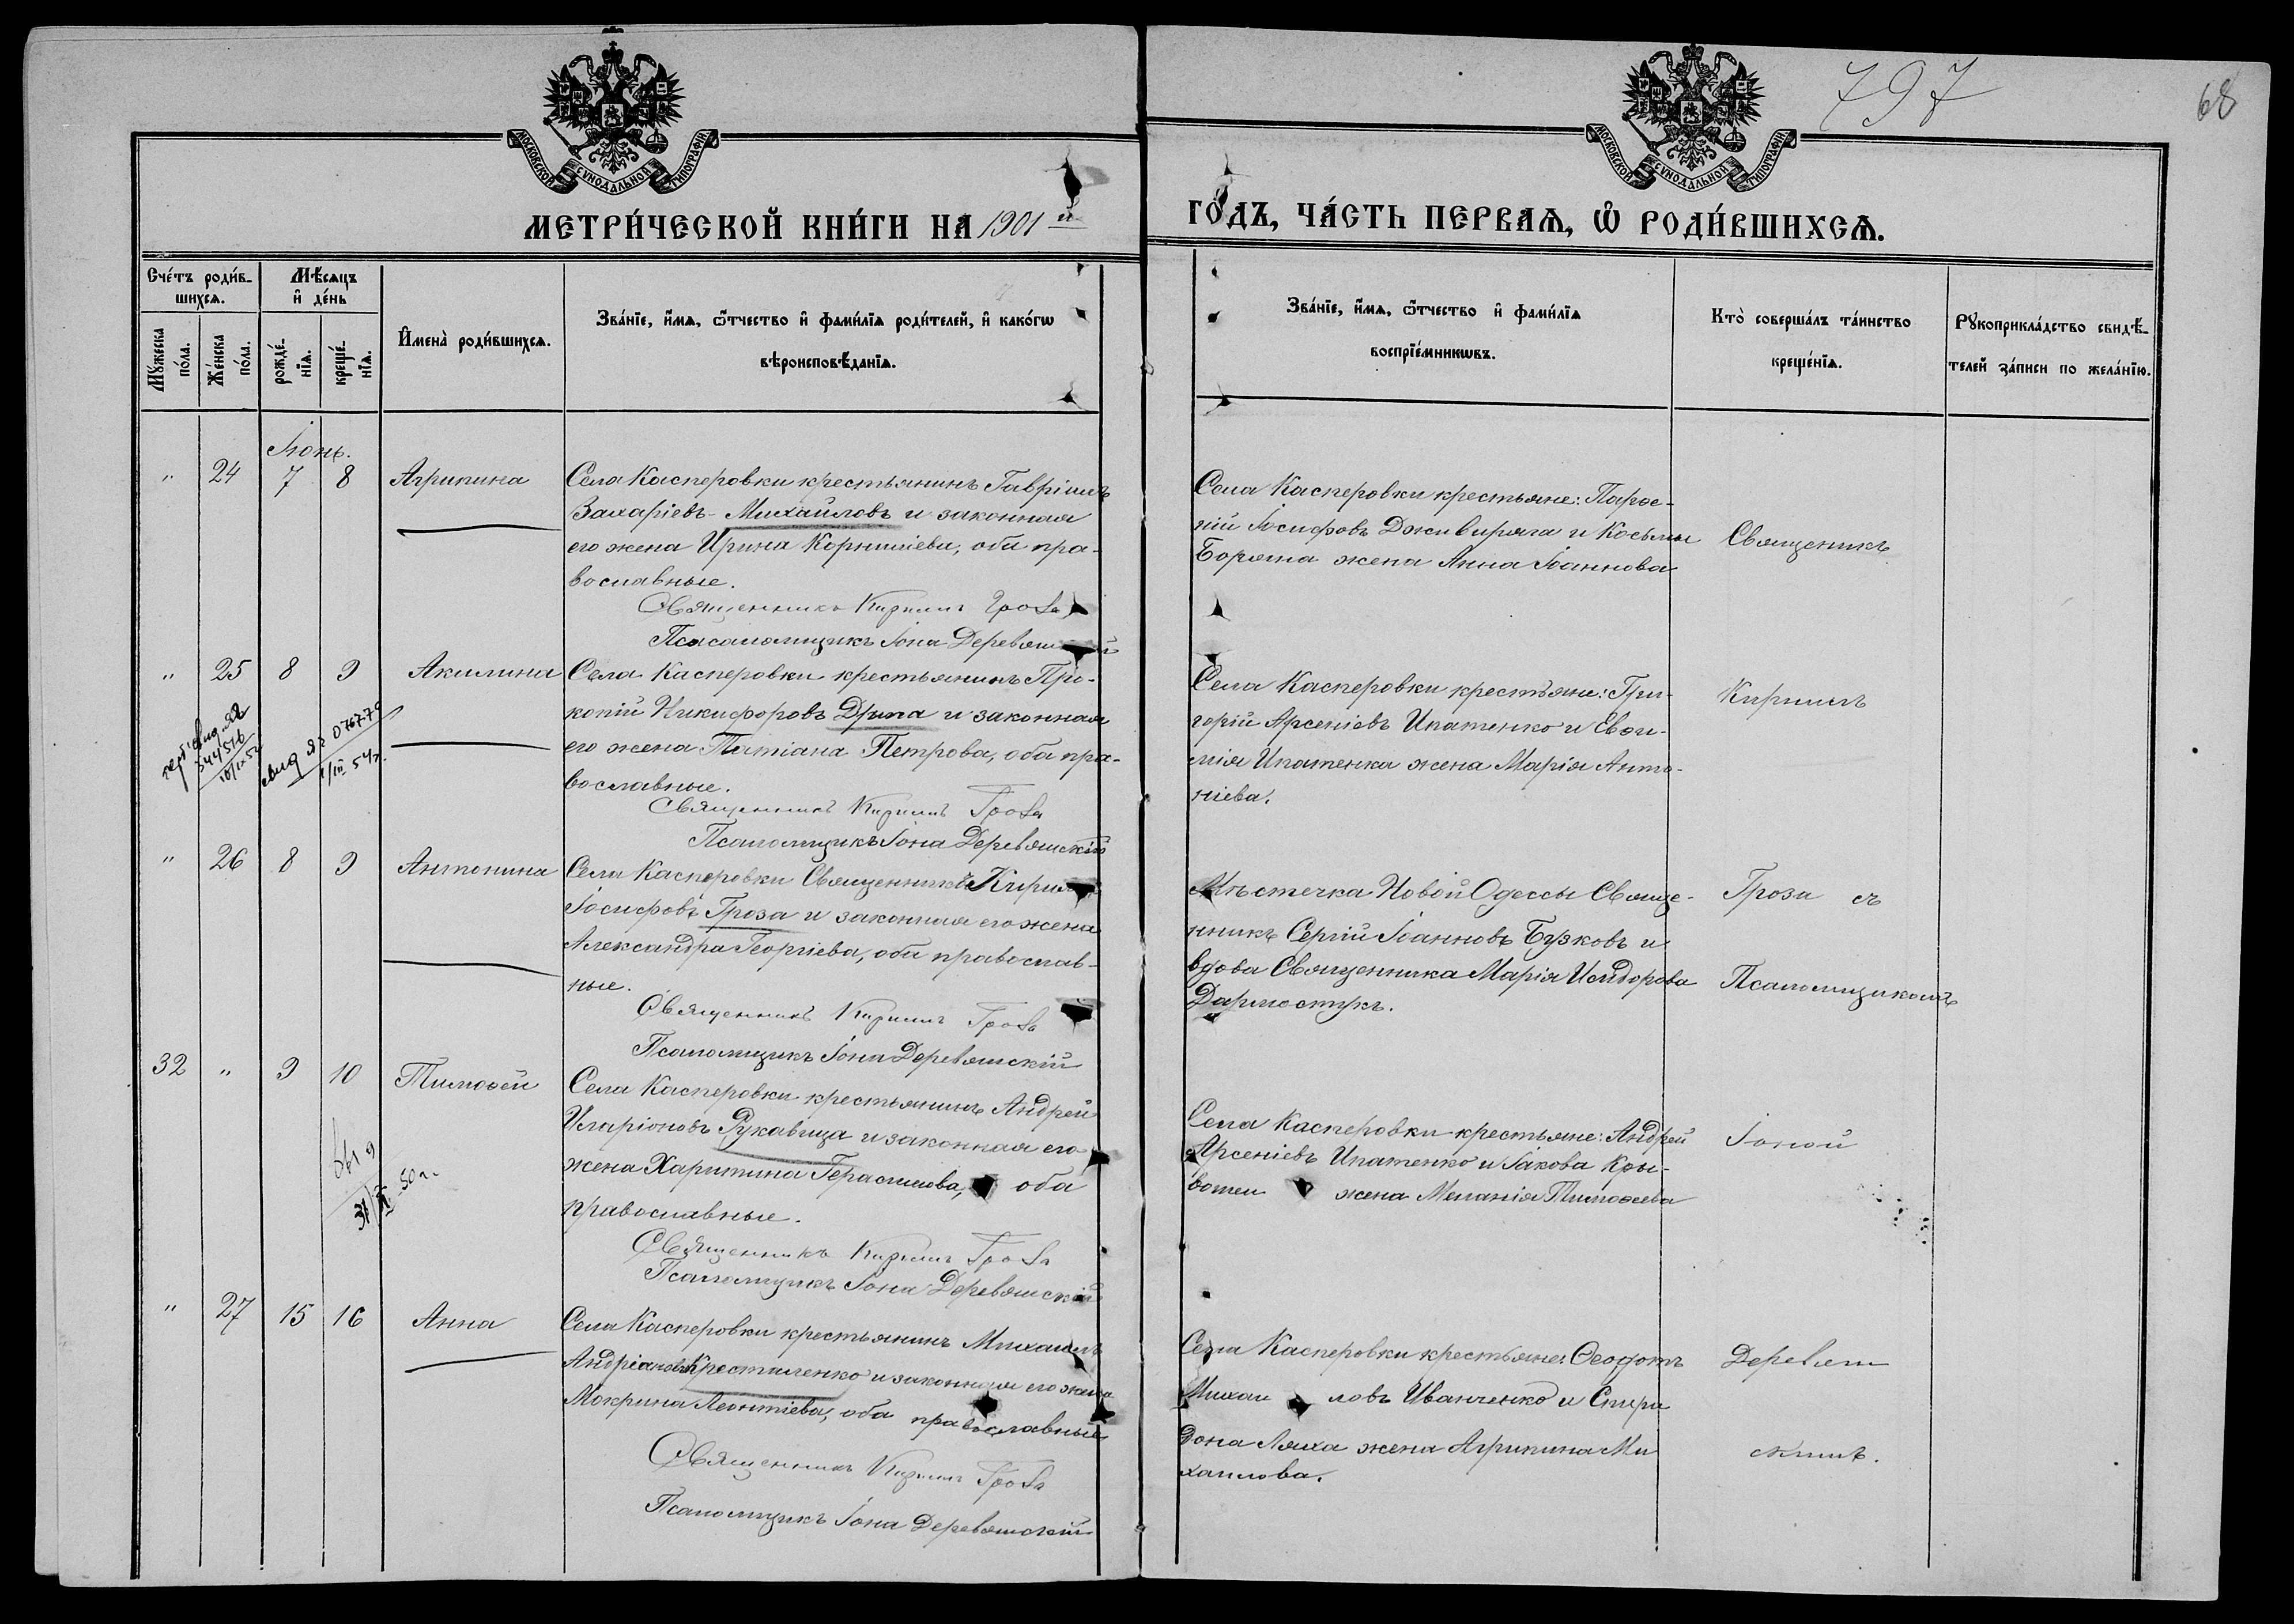 797
68
МОСКОВСКОЙ СѴНОДАЛЬНОЙ ТИПОГРАФІИ
МОСКОВСКОЙ СѴНОДАЛЬНОЙ ТИПОГРАФІИ
МЕТРИ́ЧЕСКОЙ КНИ́ГИ НА 1901 й
ГО́ДЪ, ЧА́СТЬ ПЕРВАѦ, Ѽ РОДИ́ВШИХСѦ.
Сче́тъ роди́в-
шихсѧ.
Мѣ́сѧцъ
и҆ де́нь
Мꙋ́жеска
по́ла.
Же́нска
по́ла.
рожде́-
нїѧ.
креще́-
нїѧ.
И҆мена̀ роди́вшихсѧ.
Зва́нїе, и҆́мѧ, ѻ҆́тчество и҆ фами́лїѧ роди́телей, и҆ како́гѡ
вѣроисповѣ́данїѧ.
Зва́нїе, и҆́мѧ, ѻ҆́тчество и҆ фами́лїѧ
воспрїе́мникѡвъ.
Кто̀ соверша́лъ та́инство
креще́нїѧ.
Рꙋкоприкла́дство свидѣ́-
телей за́писи по жела́нїю.
Іюнь.
" 24 7 8 Агрипина
Села Касперовки крестьянинъ Гавріилъ
Захаріевъ Михайловъ и законная
его жена Ирина Корниліева, оба пра-
вославные.
Священникъ Кириллъ Гроза
Псаломщикъ Іона Деревянскій
Села Касперовки крестьяне:
Іосифовъ и Косьмы
жена Анна Іоаннова
Священникъ
" 25 8 9 Акилина
Села Касперовки крестьянинъ Про-
копій Никифоровъ Дрига и законная
его жена Татіана Петрова, оба пра-
вославные.
Священникъ Кириллъ Гроза
Псаломщикъ Іона Деревянскій
Села Касперовки крестьяне: Гри-
горій Арсеніевъ Ипатенко и
Ипатенка жена Марія Анто-
ніева.
Кирилъ
" 26 8 9 Антонина
Села Касперовки Священникъ Кирилъ
Іосифовъ Гроза и законная его жена
Александра Георгіева, оба православ-
ные.
Священникъ Кириллъ Гроза
Псаломщикъ Іона Деревянскій
Мѣстечка Новой Одессы Свяще-
нникъ Сергій Іоанновъ Бузковъ и
вдова Священника Марія Исидорова
Дармостукъ.
Гроза съ
Псаломщикомъ
32 " 9 10 Тимоѳей
Села Касперовки крестьянинъ Андрей
Иларіоновъ Рукавица и законная его
жена Харитина Герасимова, оба
православные.
Священникъ Кириллъ Гроза
Псаломщикъ Іона Деревянскій
Села Касперовки крестьяне: Андрей
Арсеніевъ Ипатенко и Іакова
жена Меланія Тимоѳеева
Іоной
" 27 15 16 Анна
Села Касперовки крестьянинъ Михаилъ
Андріановъ и законная его жена
Мокрина Леонтіева, оба православные
Священникъ Кириллъ Гроза
Псаломщикъ Іона Деревянскій
Села Касперовки крестьяне: Ѳеодотъ
Михаиловъ Иванченко и Спири
дона Ляха жена Агрипина Ми
хаилова.
Деревян
скимъ.